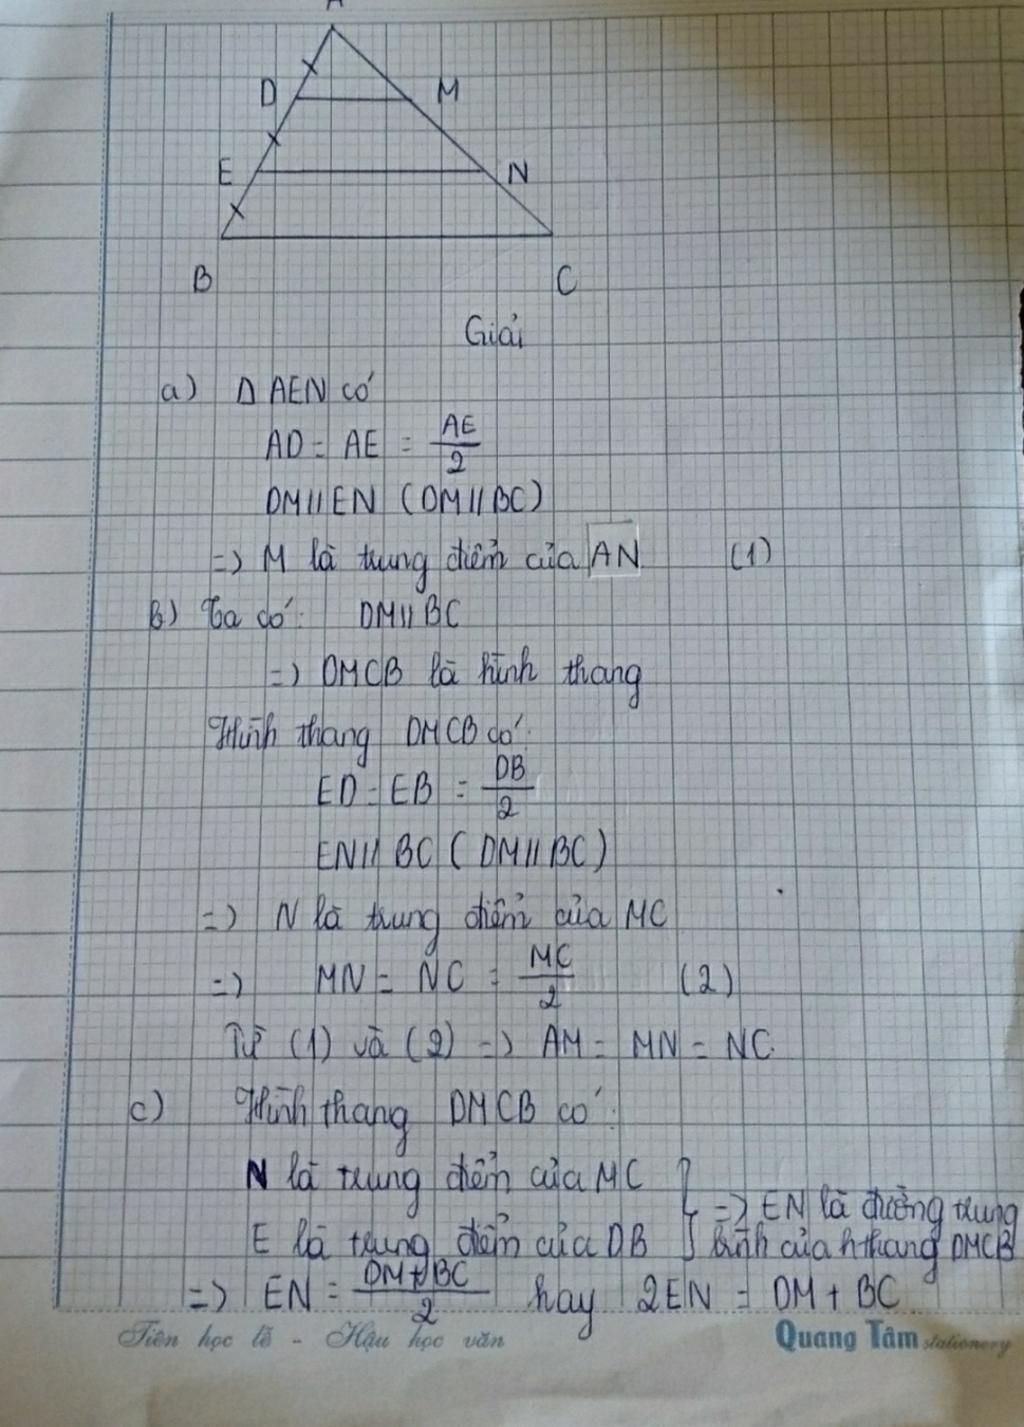 A
D M
E N
B C
Giải
a) Δ AEN có
AD = AE = AE/2
DM // EN (DM // BC)
=> M là trung điểm của AN (1)
b) Ta có: DM // BC
=> DMCB là hình thang
Hình thang DMCB có:
ED = EB = DB/2
EN // BC (DM // BC)
=> N là trung điểm của MC
=> MN = NC = MC/2 (2)
Từ (1) và (2) => AM = MN = NC
c) Hình thang DMCB có:
N là trung điểm của MC
E là trung điểm của DB } => EN là đường trung bình của h thang DMCB
=> EN = DM + BC/2 hay 2EN = DM + BC
Tiên học lễ - Hậu học văn Quang Tâm stationery